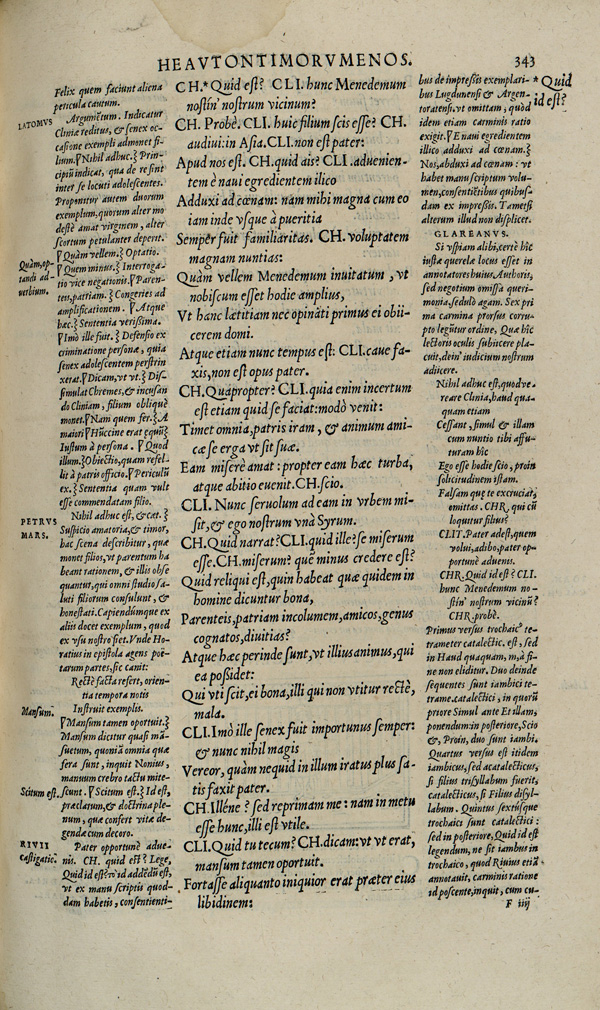 HEAVTONTIMORVMENOS. 343
Felix quem faciunt aliena
pericula cautum.
LATOMVS
Argumẽtum. Indicatur
Cliniæ reditus, & senex oc-
casione exempli admonet fi-
lium. ¶ Nihil adhuc.⁊ Prin-
cipiũ indicat, qua de re sint
inter se locuti adolescentes.
Proponitur autem duorum
exemplum, quorum alter mo
destè amat virginem, alter
scortum petulanter deperit.
Quàm, op-
tandi ad-
uerbium.
¶ Quàm vellem.⁊ Optatio.
¶ Quem minus.⁊ Interroga-
tio vice negationis. ¶ Paren-
teis, patriam.⁊ Congeries ad
amplificationem. ¶ Atque
hæc.⁊ Sententia verissima.
¶ Imò ille fuit.⁊ Defensio ex
criminatione personæ, quia
senex adolescentem perstrin
xerat. ¶ Dicam, vt vt.⁊ Dis-
simulat Chremes, & incusan
do Cliniam, filium obliquè
monet. ¶ Nam quem fer.⁊ A
maiori ¶ Húccine erat æquũ⁊
Iustum à persona. ¶ Quod
illum.⁊ Obiectio, quam refel-
lit à patris officio. ¶ Periculũ
ex.⁊ Sententia quam vult
esse commendatam filio.
PETRVS
MARS.
Nihil adhuc est, & cæt.⁊
Suspicio amatoria, & timor,
hac scena describitur, quæ
monet filios, vt parentum ha
beant rationem, & illis obse
quantur, qui omni studio sa-
luti filiorum consulunt, &
honestati. Capiendúmque ex
aliis docet exemplum, quod
ex vsu nostro siet. Vnde Ho-
ratius in epistola agens poë-
tarum partes, sic canit:
Rectè facta refert, orien-
tia tempora notis
Instruit exemplis.
Mansum.
¶ Mansum tamen oportuit.⁊
Mansum dicitur quasi mã-
suetum, quoniã omnia quæ
fera sunt, inquit Nonius,
manuum crebro tactu mite-
Scitum est.
scunt. ¶ Scitum est.⁊ Id est,
præclarum, & doctrina ple-
num, quæ confert vitæ de-
gendæ cum decoro.
RIVII
Castigatio.
Pater opportunè adue-
nis. CH. quid est? Lege,
Quid id est? τὸ id addẽdũ est,
vt ex manu scriptis quod-
dam habetis, consentienti-
CH.*Quid est? CLI. hunc Menedemum
nostin' nostrum vicinum?
CH. Probè. CLI. huic filium scis esse? CH.
audiui: in Asia. CLI. non est pater:
Apud nos est. CH. quid ais? CLI. aduenien-
tem è naui egredientem ilico
Adduxi ad cœnam: nam mihi magna cum eo
iam inde vsque à pueritia
Semper fuit familiaritas. CH. voluptatem
magnam nuntias:
Quàm vellem Menedemum inuitatum, vt
nobiscum esset hodie amplius,
Vt hanc lætitiam nec opinãti primus ei obii-
cerem domi.
Atque etiam nunc tempus est: CLI. caue fa-
xis, non est opus pater.
CH. Quapropter? CLI. quia enim incertum
est etiam quid se faciat: modò venit:
Timet omnia, patris iram, & animum ami-
cæ se erga vt sit suæ.
Eam miserè amat: propter eam hæc turba,
atque abitio euenit. CH. scio.
CLI. Nunc seruolum ad eam in vrbem mi-
sit, & ego nostrum vnà Syrum.
CH. Quid narrat? CLI. quid ille? se miserum
esse. CH. miserum? quẽ minus credere est?
Quid reliqui est, quin habeat quæ quidem in
homine dicuntur bona,
Parenteis, patriam incolumem, amicos, genus
cognatos, diuitias?
Atque hæc perinde sunt, vt illius animus, qui
ea possidet:
Qui vti scit, ei bona, illi qui non vtitur rectè,
mala.
CLI. Imò ille senex fuit importunus semper:
& nunc nihil magis
Vereor, quàm nequid in illum iratus plus sa-
tis faxit pater.
CH. Illéne? sed reprimam me: nam in metu
esse hunc, illi est vtile.
CLI. Quid tu tecum? CH. dicam: vt vt erat,
mansum tamen oportuit.
Fortasse aliquanto iniquior erat præter eius
libidinem:
bus de impressis exemplari-
bus Lugdunensi & Argen-
toratensi. vt omittam, quòd
idem etiam carminis ratio
exigit. ¶ E naui egredientem
illico adduxi ad cœnam.⁊
Nos, abduxi ad cœnam: vt
habet manuscriptum volu-
men, consentiẽtibus quibus-
dam ex impressis. Tametsi
alterum illud non displicet.
* Quid
id est?
GLAREANVS.
Si vspiam alibi, certè hîc
iusta querelæ locus esset in
annotatores huius Authoris,
sed negotium omissa queri-
monia, sedulò agam. Sex pri
ma carmina prorsus corru-
pto legũtur ordine, Quæ hîc
lectoris oculis subiicere pla-
cuit, dein' iudicium nostrum
adiicere.
Nihil adhuc est, quod ve-
reare Clinia, haud qua-
quam etiam
Cessant, simul & illam
cum nuntio tibi affu-
turam hîc
Ego esse hodie scio, proin
solicitudinem istam.
Falsam quæ te excruciat,
omittas. CHR. qui cũ
loquutur filius?
CLIT. Pater adest, quem
volui, adibo, pater op-
portunè aduenis.
CHR. Quid id est? CLI.
hunc Menedemum no-
stin' nostrum vicinũ?
CHR. probè.
Primus versus trochaic⁹ te-
trameter catalectic. est, sed
in Haud quaquam, m, à fi-
ne non eliditur. Duo deinde
sequentes sunt iambici te-
trame. catalectici, in quorũ
priore Simul ante Et illam,
ponendum: in posteriore, Scio
&, Proin, duo sunt iambi.
Quartus versus est itidem
iambicus, sed acatalecticus,
si filius trisyllabum fuerit,
catalecticus, si Filius disyl-
labum. Quintus sextúsque
trochaici sunt catalectici:
sed in posteriore, Quid id est
legendum, ne sit iambus in
trochaico, quod Riuius etiã
annotauit, carminis ratione
id poscente, inquit, cum cu-
F iiij